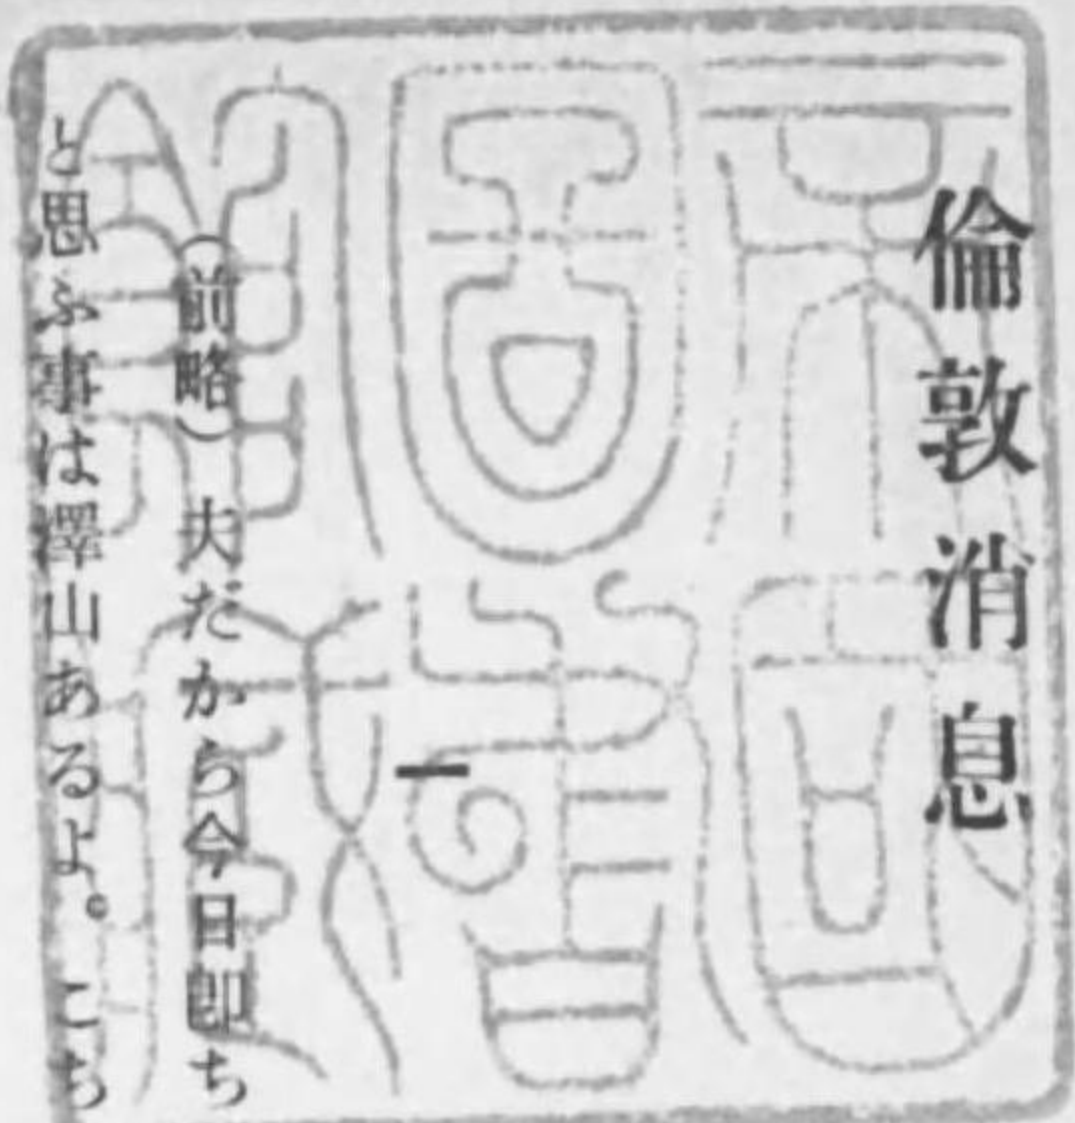 倫敦消息
一
（前略）夫だから今日卽ち
と思ふ事は澤山あるよ。こち